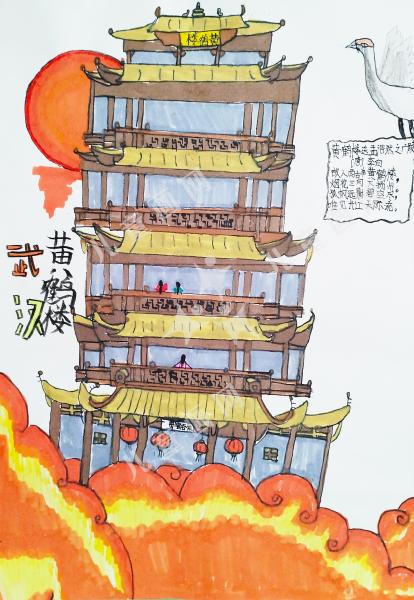 黄鹤楼
黄鹤楼送孟浩然之广陵
唐 李白
故人西辞黄鹤楼，
烟花三月下扬州。
孤帆远影碧空尽，
唯见长江天际流。
武汉
黄鹤楼